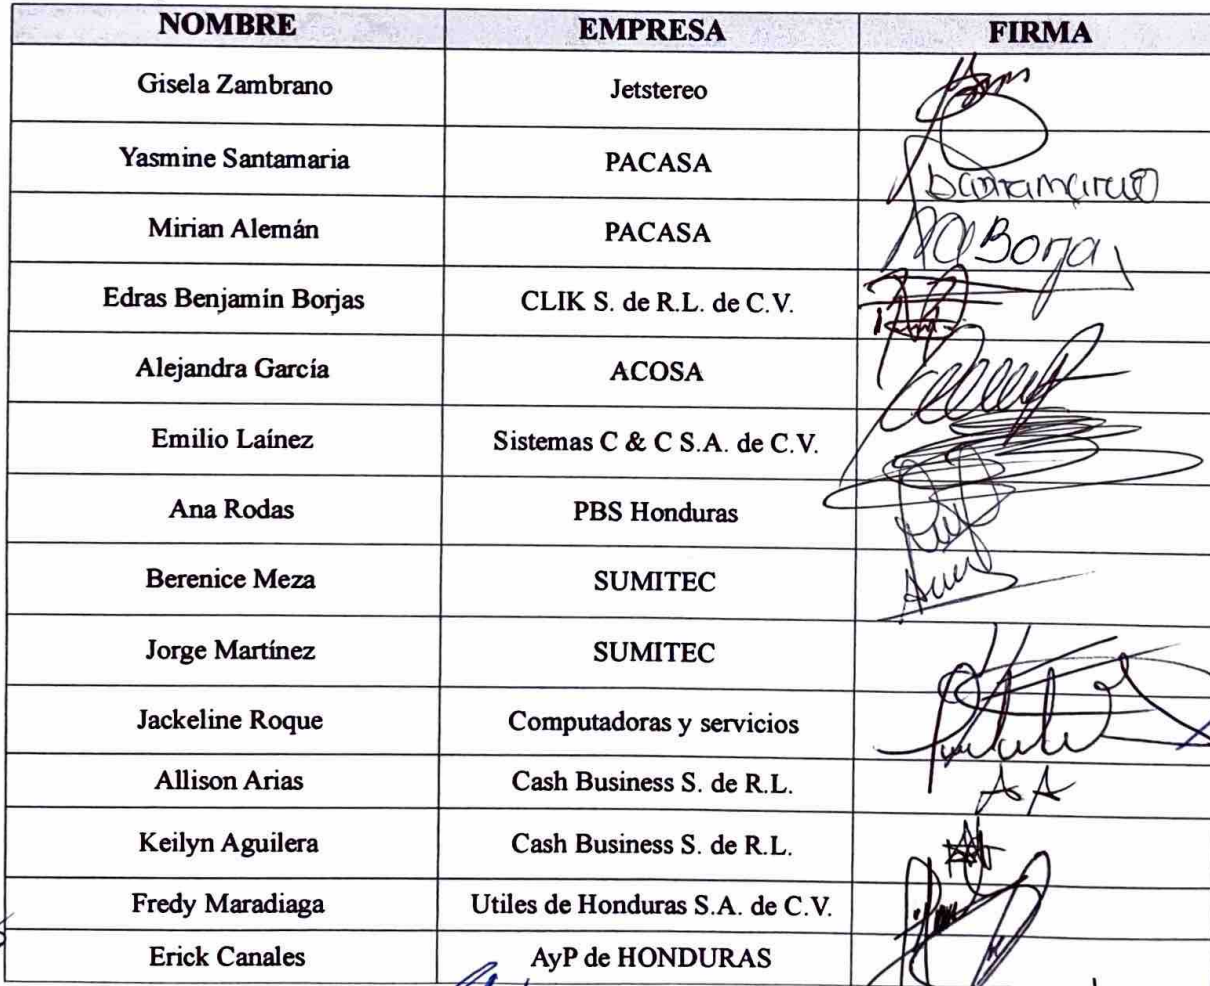 NOMBRE EMPRESA FIRMA
Gisela Zambrano Jetstereo
Yasmine Santamaria PACASA
Mirian Alemán PACASA
Edras Benjamín Borjas CLIK S. de R.L. de C.V.
Alejandra García ACOSA
Emilio Laínez Sistemas C & C S.A. de C.V.
Ana Rodas PBS Honduras
Berenice Meza SUMITEC
Jorge Martínez SUMITEC
Jackeline Roque Computadoras y servicios
Allison Arias Cash Business S. de R.L. AA
Keilyn Aguilera Cash Business S. de R.L.
Fredy Maradiaga Utiles de Honduras S.A. de C.V.
Erick Canales AyP de HONDURAS